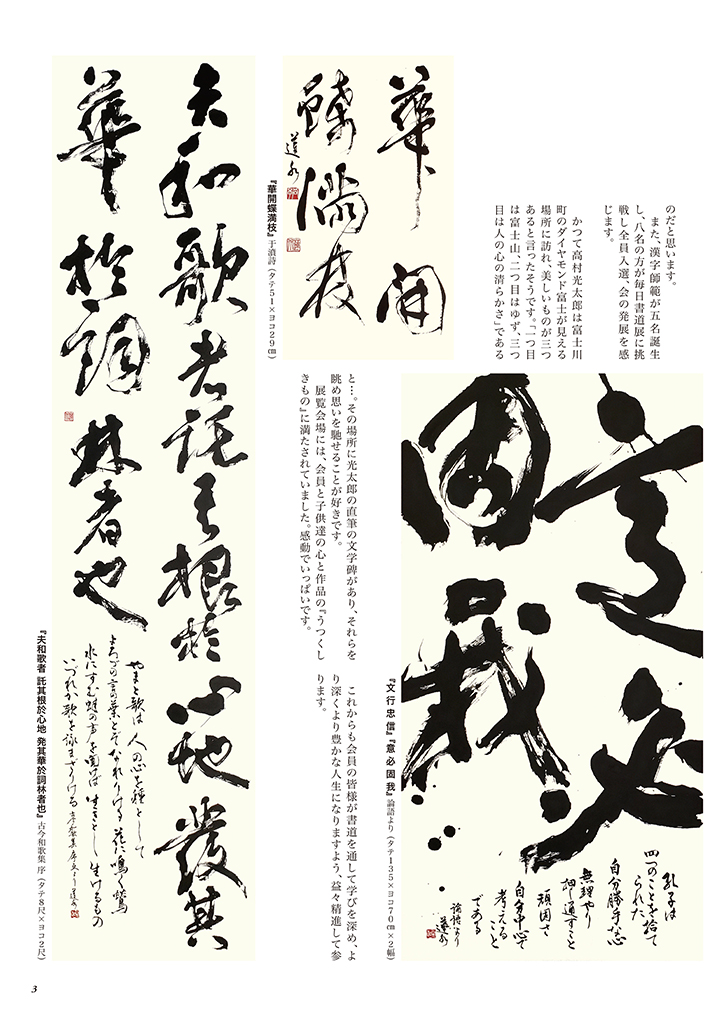 のだと思います。
また、漢字師範が五名誕生
し、八名の方が毎日書道展に挑
戦し全員入選、会の発展を感
じます。
かつて高村光太郎は富士川
町のダイヤモンド富士が見える
場所に訪れ、美しいものが三つ
あると言ったそうです。「一つ目
は富士山、二つ目はゆず、三つ
目は人の心の清らかさ」である
華開
蝶満枝
道
『華開蝶満枝』于濆詩（タテ51×ヨコ29㎝）
と…。その場所に光太郎の直筆の文学碑があり、それらを
眺め思いを馳せることが好きです。
展覧会場には、会員と子供達の心と作品の『うつくし
きもの』に満たされていました。感動でいっぱいです。
これからも会員の皆様が書道を通して学びを深め、よ
り深くより豊かな人生になりますよう、益々精進して参
ります。
意必
固我
孔子は
四つのことを捨て
られた
自分勝手な心
無理やり
押し通すこと
頑固さ
自分中心で
考える
こと
である
論語より
『文行忠信』『意必固我』論語より（タテ135×ヨコ70㎝×2幅）
夫和歌者託其根於心地發其
華於詞林者也
やまと歌は人の心を種として
よろづの言の葉とぞなれりける花に鳴く鶯
水にすむ蛙の声を聞けば生きとし生けるもの
いづれか歌を詠まざりける
『夫和歌者 託其根於心地 発其華於詞林者也』古今和歌集 序（タテ8尺×ヨコ2尺）
3